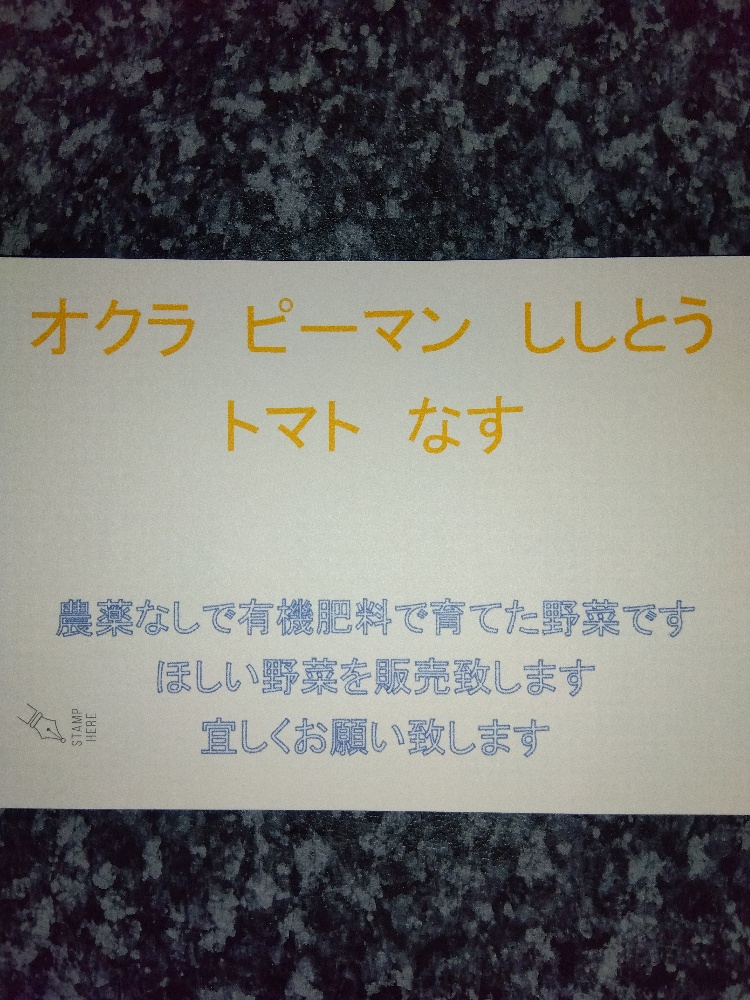 オクラ ピーマン ししとう
トマト なす
農薬なしで有機肥料で育てた野菜です
ほしい野菜を販売致します
宜しくお願い致します
STAMP
HERE